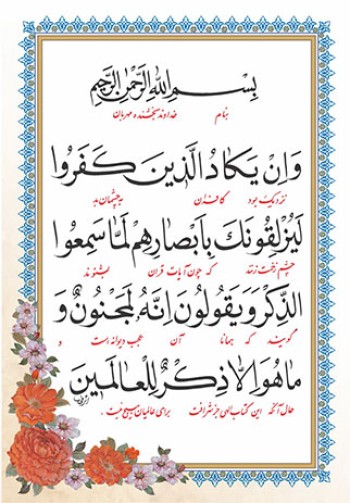 بِسْمِ اللهِ الرَّحْمٰنِ الرَّحِيمِ
بنام خداوند بخشنده مهربان
وَاِنْ يَكادُ الَّذينَ كَفَرُوا
نزدیک بود کافران به چشمان بد
لَيُزْلِقُونَكَ بِاَبْصارِهِمْ لَمّا سَمِعُوا
چشم زخمت زنند که چون آیات قرآن بشنوند
الذِّكْرَ وَيَقُولُونَ اِنَّهُ لَمَجْنُونٌ وَ
گویند که همانا آن عجب دیوانه است و
ما هُوَ اِلّا ذِكْرٌ لِلْعالَمينَ
حال آنکه این کتاب الهی جز شرافت برای عالمیان هیچ نیست.